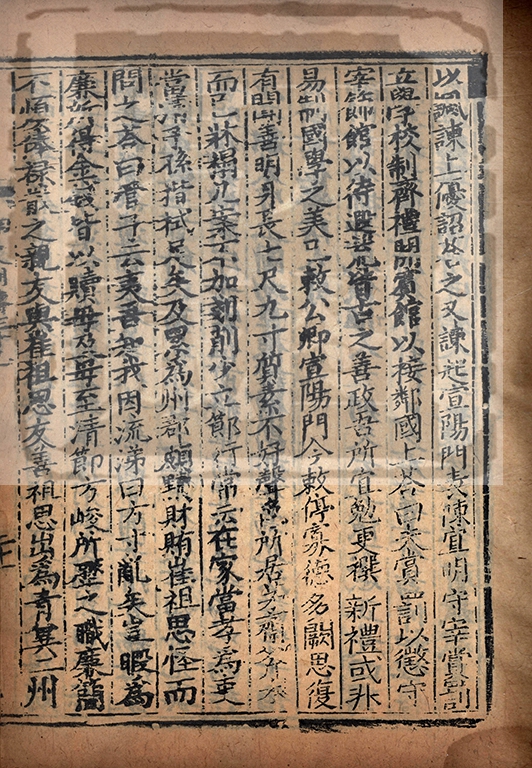 以諷諫上優詔答之又諫起宣陽門表陳宜明守宰賞罰
立學校制齊禮開賓館以接鄰國上答曰夫賞罰以懲守
宰飾館以待遐荒皆古之善政吾所宜勉更撰新禮或非
易制國學之美已敕公卿宣陽門今敕停寡德多闕思復
有聞善明身長七尺九寸質素不好聲色所居茅齋斧木
而已牀榻几案不加剗削少立節行常云在家當孝為吏
當清子孫楷栻足矣及累為州郡頗黷財賄崔祖思怪而
問之答曰管子云夷吾知我因流涕曰方寸亂矣豈暇為
廉所得金錢皆以贖母及母至清節方峻所歷之職廉簡
不煩俸祿散之親友與崔祖思友善祖思出為青冀二州